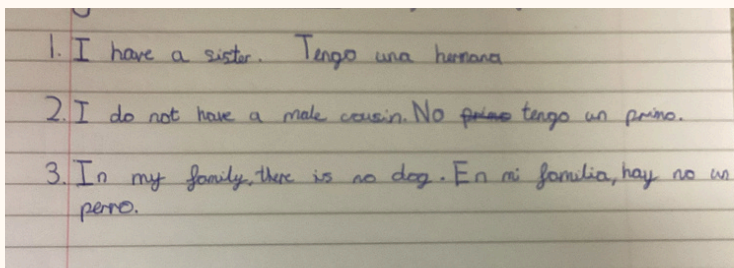 1. I have a sister. Tengo una hermana
2. I do not have a male cousin. No primo tengo un primo.
3. In my family, there is no dog. En mi familia, hay no un
perro.